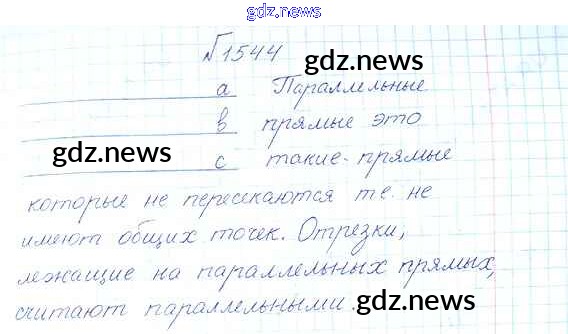 gdz.news
№1544
gdz.news
a Параллельные
в прямые это
gdz.news
с такие-прямые
которые не пересекаются те. не
имеют общих точек. Отрезки,
лежащие на параллельных прямых,
считают параллельными.
gdz.news